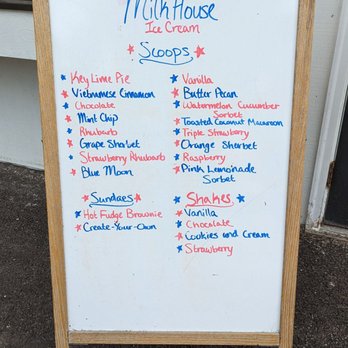 Milk House
Ice Cream
Scoops
Key Lime Pie
Vietnamese Cinnamon
Chocolate
Mint Chip
Rhubarb
Grape Sherbet
Strawberry Rhubarb
Blue Moon
Vanilla
Butter Pecan
Watermelon Cucumber
Sorbet
Toasted Coconut Macaroon
Triple Strawberry
Orange Sherbet
Raspberry
Pink Lemonade
Sorbet
Sundaes
Hot Fudge Brownie
Create-Your-Own
Shakes
Vanilla
Chocolate
Cookies and Cream
Strawberry